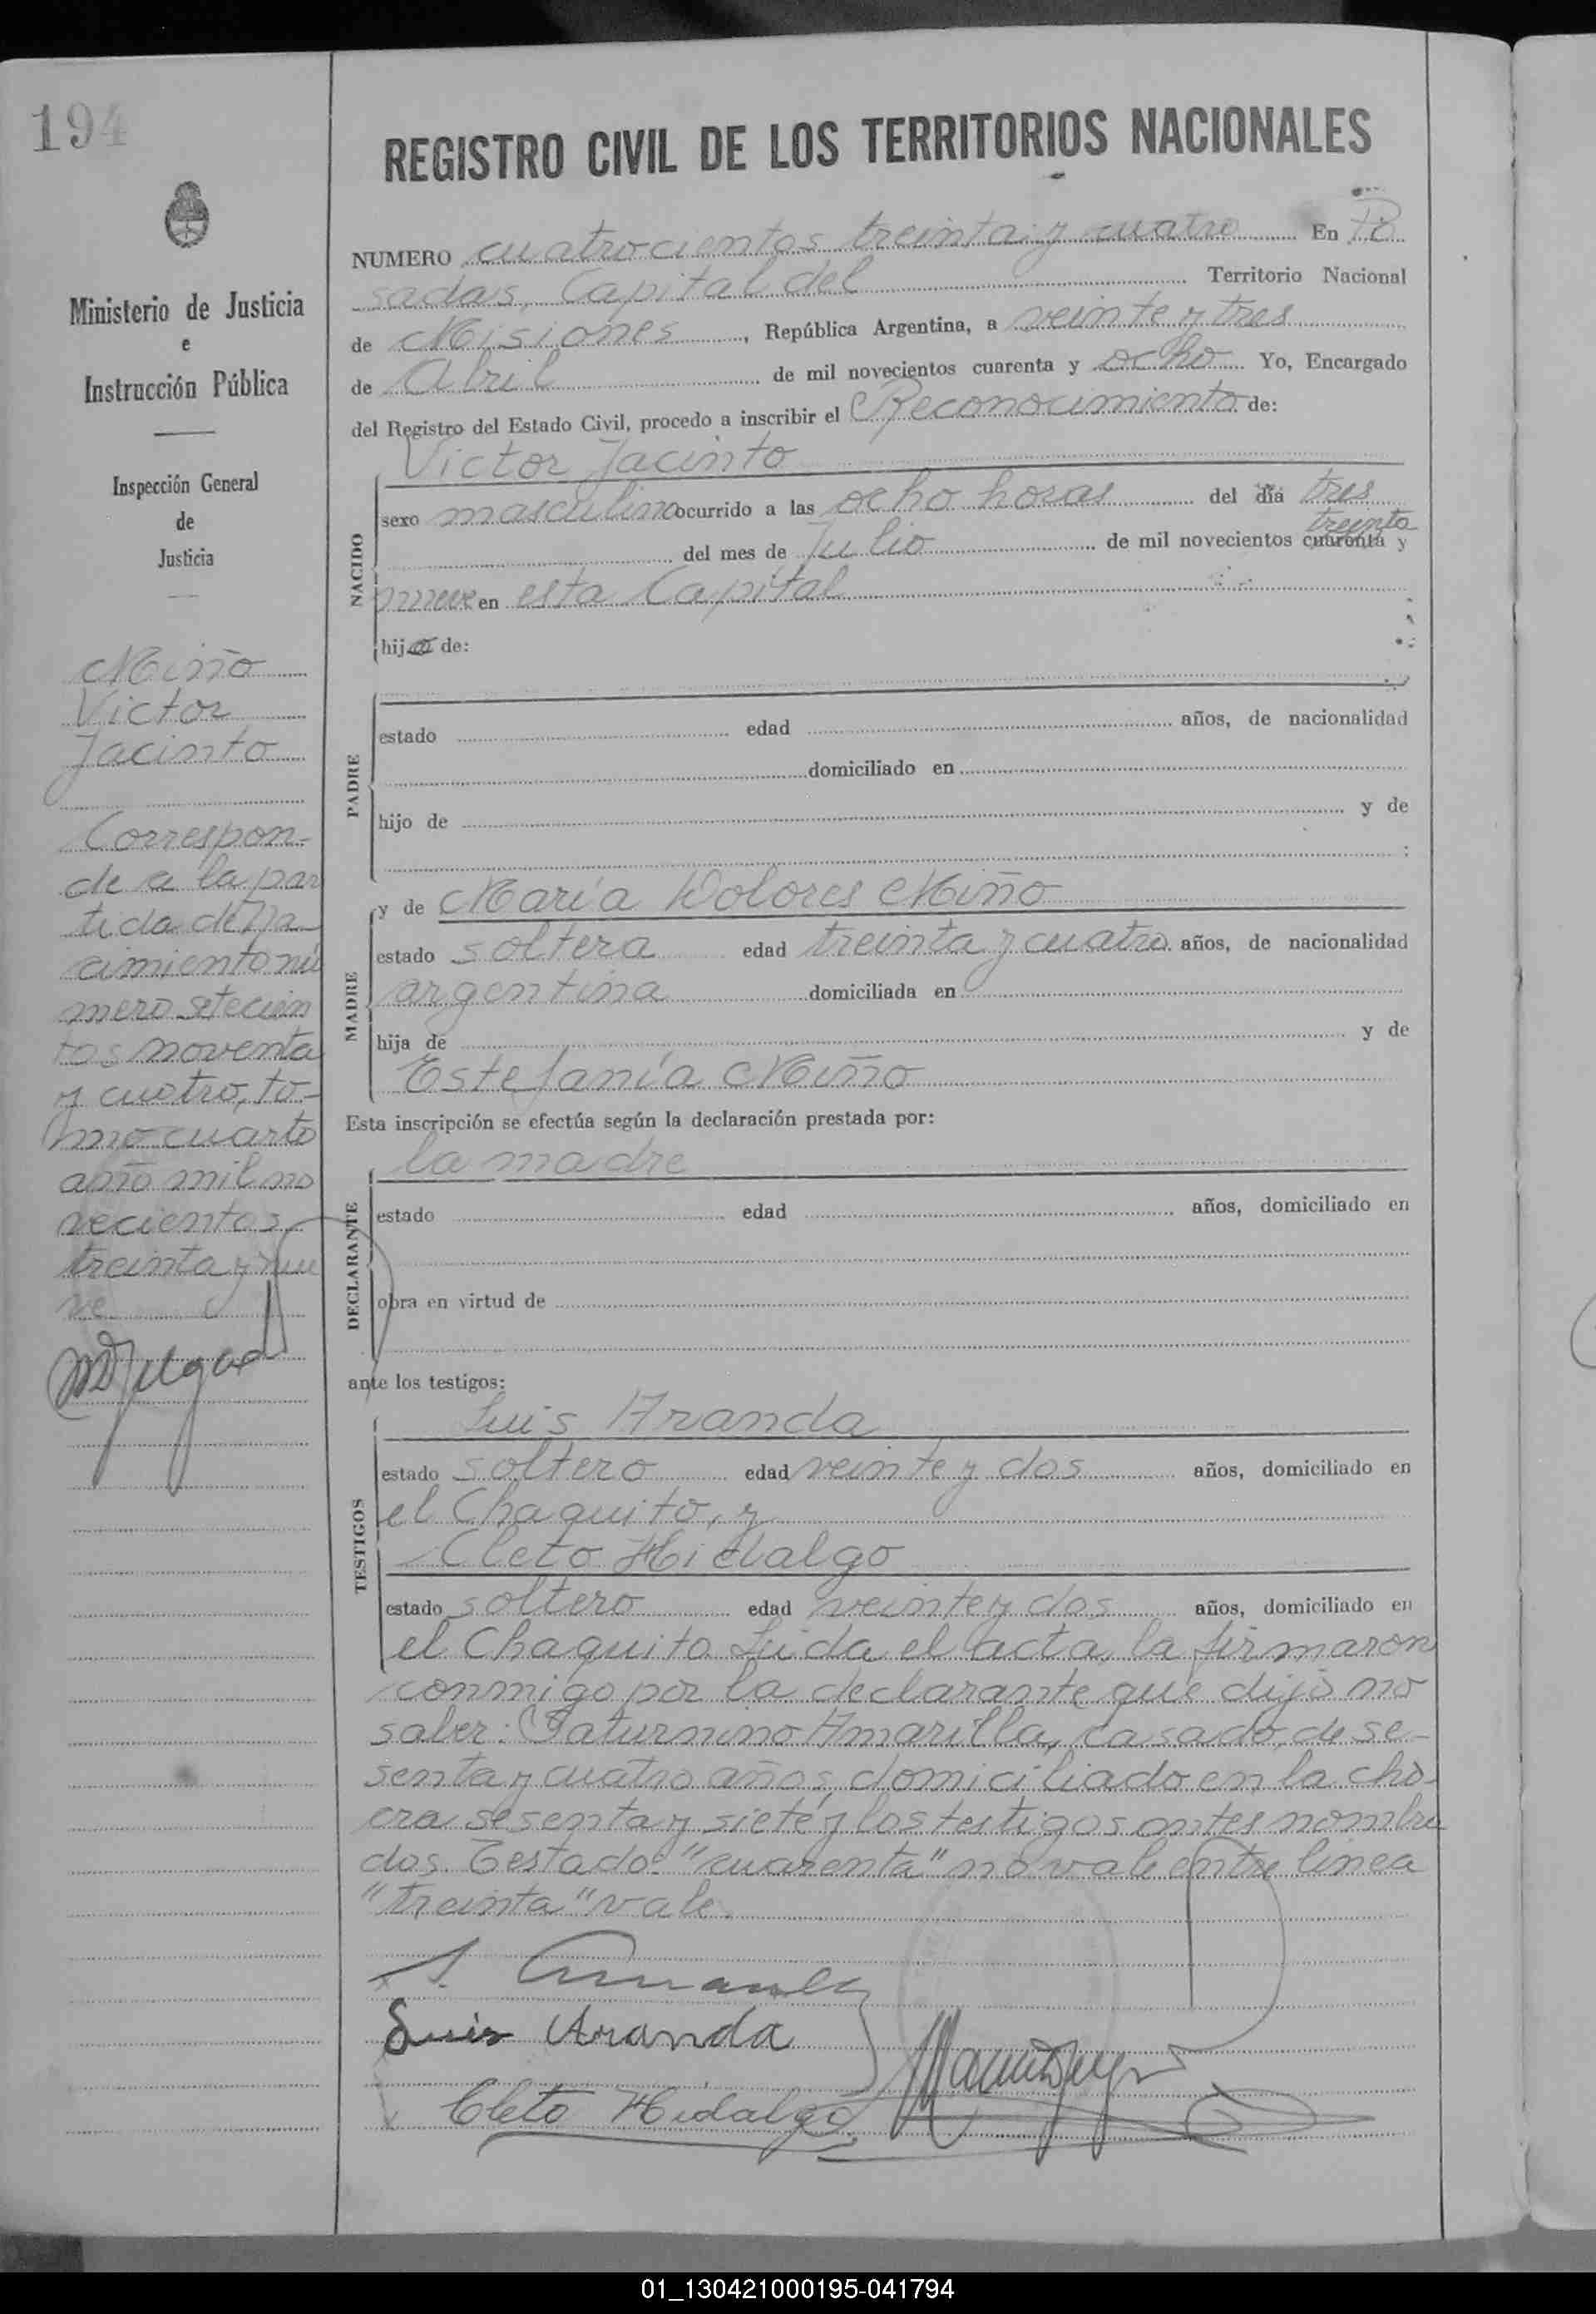 194
Ministerio de Justicia
e
Instrucción Pública
Inspección General
de
Justicia
Miño
Victor
Jacinto
Correspon-
de a la par
tida de Na
cimiento nú
mero setecien
tos noventa
y cuatro, to-
mo cuarto
año mil no
vecientos
treinta y nue
ve
REGISTRO CIVIL DE LOS TERRITORIOS NACIONALES
NUMERO cuatrocientos treinta y cuatro En Po
sadas, Capital del Territorio Nacional
de Misiones, República Argentina, a veinte y tres
de Abril de mil novecientos cuarenta y ocho Yo, Encargado
del Registro del Estado Civil, procedo a inscribir el Reconocimiento de:
Victor Jacinto
NACIDO
sexo masculino ocurrido a las ocho horas del día tres
treinta
del mes de Julio de mil novecientos cuarenta y
nueve en esta Capital
hijo de:
PADRE
estado edad años, de nacionalidad
domiciliado en
hijo de y de
;
MADRE
y de María Dolores Miño
estado soltera edad treinta y cuatro años, de nacionalidad
argentina domiciliada en
hija de y de
Estefanía Miño
Esta inscripción se efectúa según la declaración prestada por:
la madre
DECLARANTE
estado edad años, domiciliado en
obra en virtud de
ante los testigos:
Luis Aranda
TESTIGOS
estado soltero edad veinte y dos años, domiciliado en
el Chaquito, y
Cleto Hidalgo
estado soltero edad veinte y dos años, domiciliado en
el Chaquito Leida el acta, la firmaron
conmigo por la declarante que dijo no
saber: Saturnino Amarilla, casado, de se-
senta y cuatro años, domiciliado en la cha-
cra sesenta y siete y los testigos antes nombra
dos. Testado: "cuarenta" no vale entre linea
"treinta" vale.
Luis Aranda
Cleto Hidalgo
01_130421000195-041794